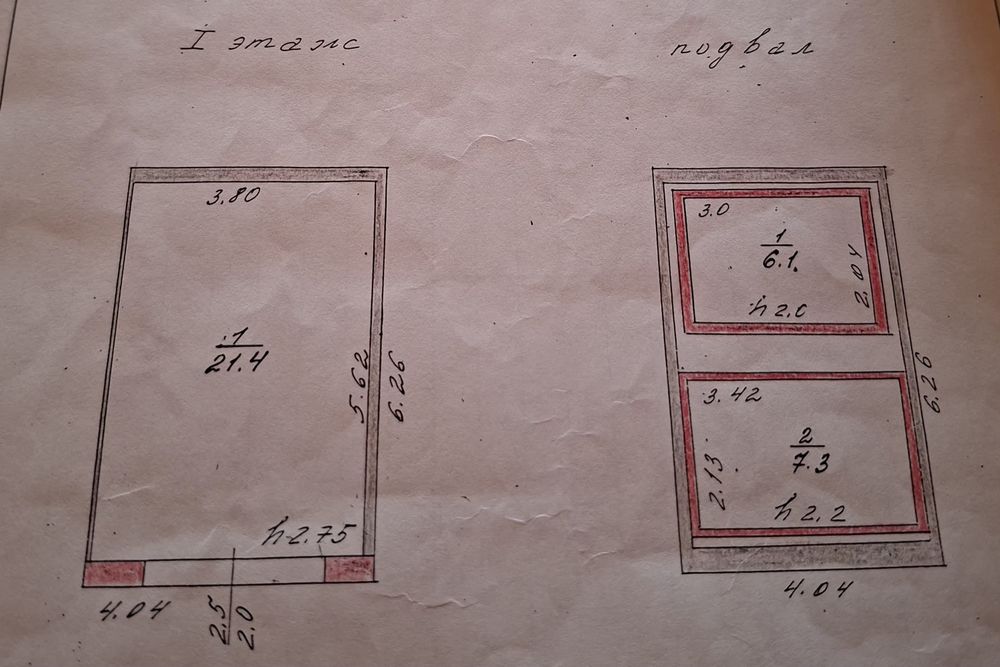 I этаж
подвал
3.80
1
21.4
5.62
6.26
h-2.75
4.04
2.5
2.0
3.0
1
6.1
2.04
h 2.0
3.42
2
7.3
2.13
h 2.2
6.26
4.04